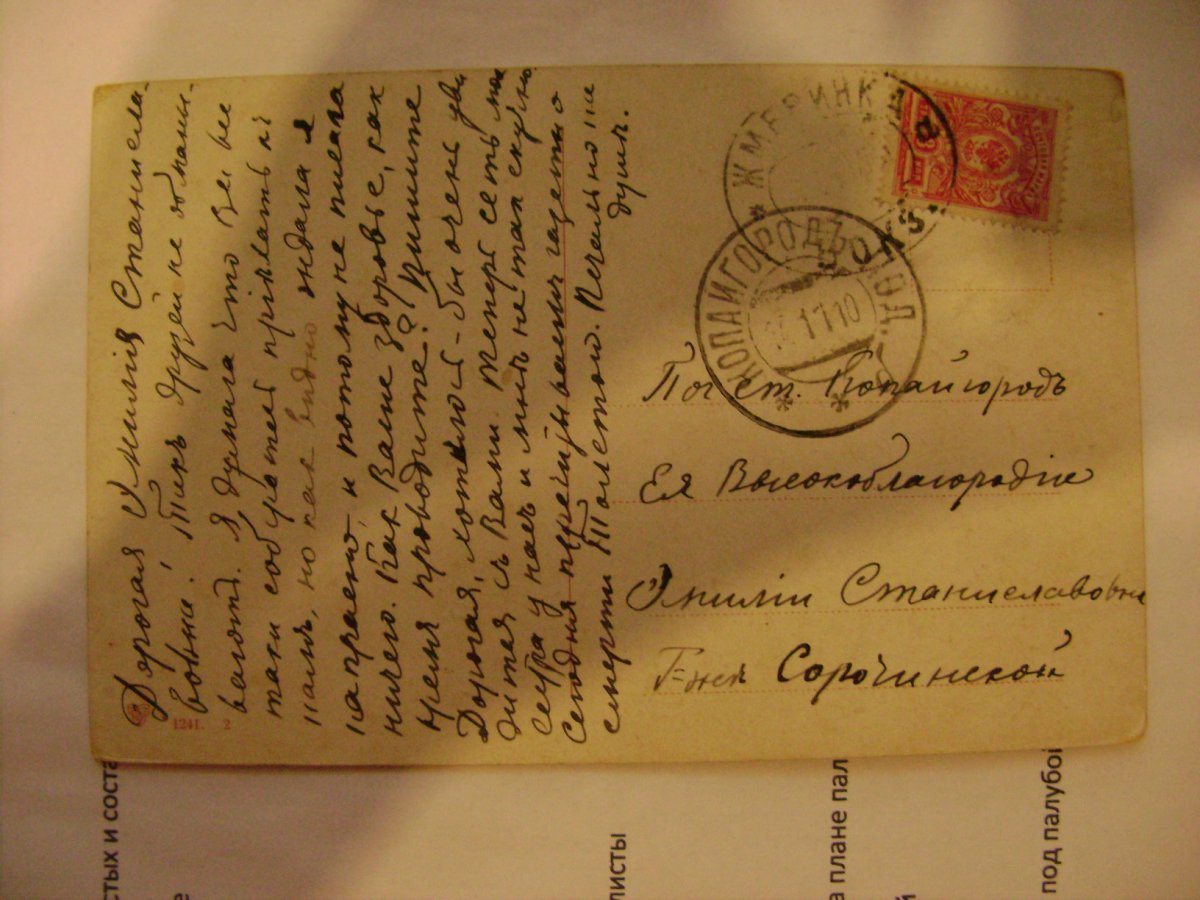 Дорогая Эмилія Станисла-
вовна! Такъ друзей не обманы-
ваютъ. Я думала что Вы все
таки соберетесь пріѣхать къ
намъ, но какъ видно ждала я
напрасно, и потому не писала
ничего. Как Ваше здоровье, как
время проводите? Пишите
Дорогая, хотѣлось-бы очень уви
диться съ Вами. Теперь сестра
у насъ и мнѣ не такъ скучно
Сегодня
смерти Толстой. Печально на
душѣ.
ЖМЕРИНКА
КОПАЙГОРОДЪ ПОД. Г.
11 10
Поч ст. Копайгородъ
Ея Высокоблагородіе
Эмиліи Станиславовны
Г-жѣ Сорочинской
1241. 2
стых и соста
е
листы
а плане пал
й
под палубой